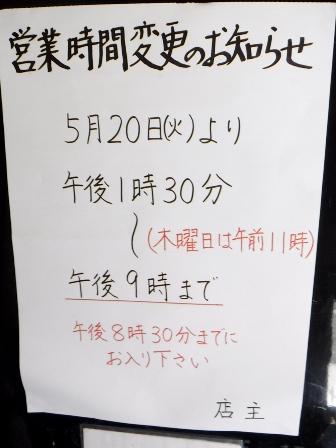 営業時間変更のお知らせ
5月20日(火)より
午後1時30分
〜(木曜日は午前11時)
午後9時まで
午後8時30分までに
お入り下さい
店主